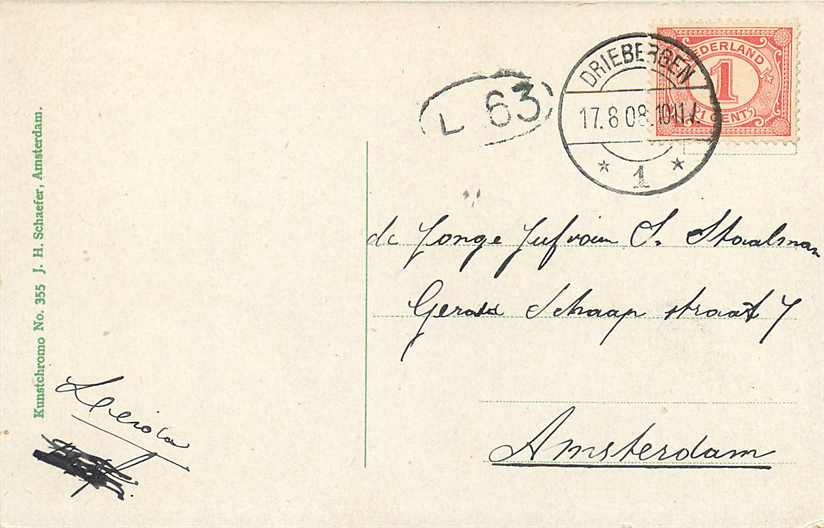 Kunstchromo No. 355 J. H. Schaefer, Amsterdam.
L 63
DRIEBERGEN
17.8 08. 10-11V.
* 1 *
NEDERLAND
1
(1 CENT)
de Jonge Jufvrouw S. Staalman
Gerard Schaap straat 7
Amsterdam